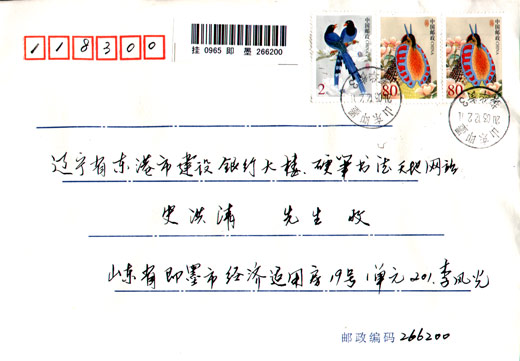 118300
挂 0965 即 墨 266200
中国邮政 CHINA
2
中国邮政 CHINA
80
中国邮政 CHINA
80
山东即墨
辽宁省东港市建设银行大楼.硬笔书法天地网站
史洪清 先生 收
山东省即墨市经济适用房19号1单元201.李风光
邮政编码 266200